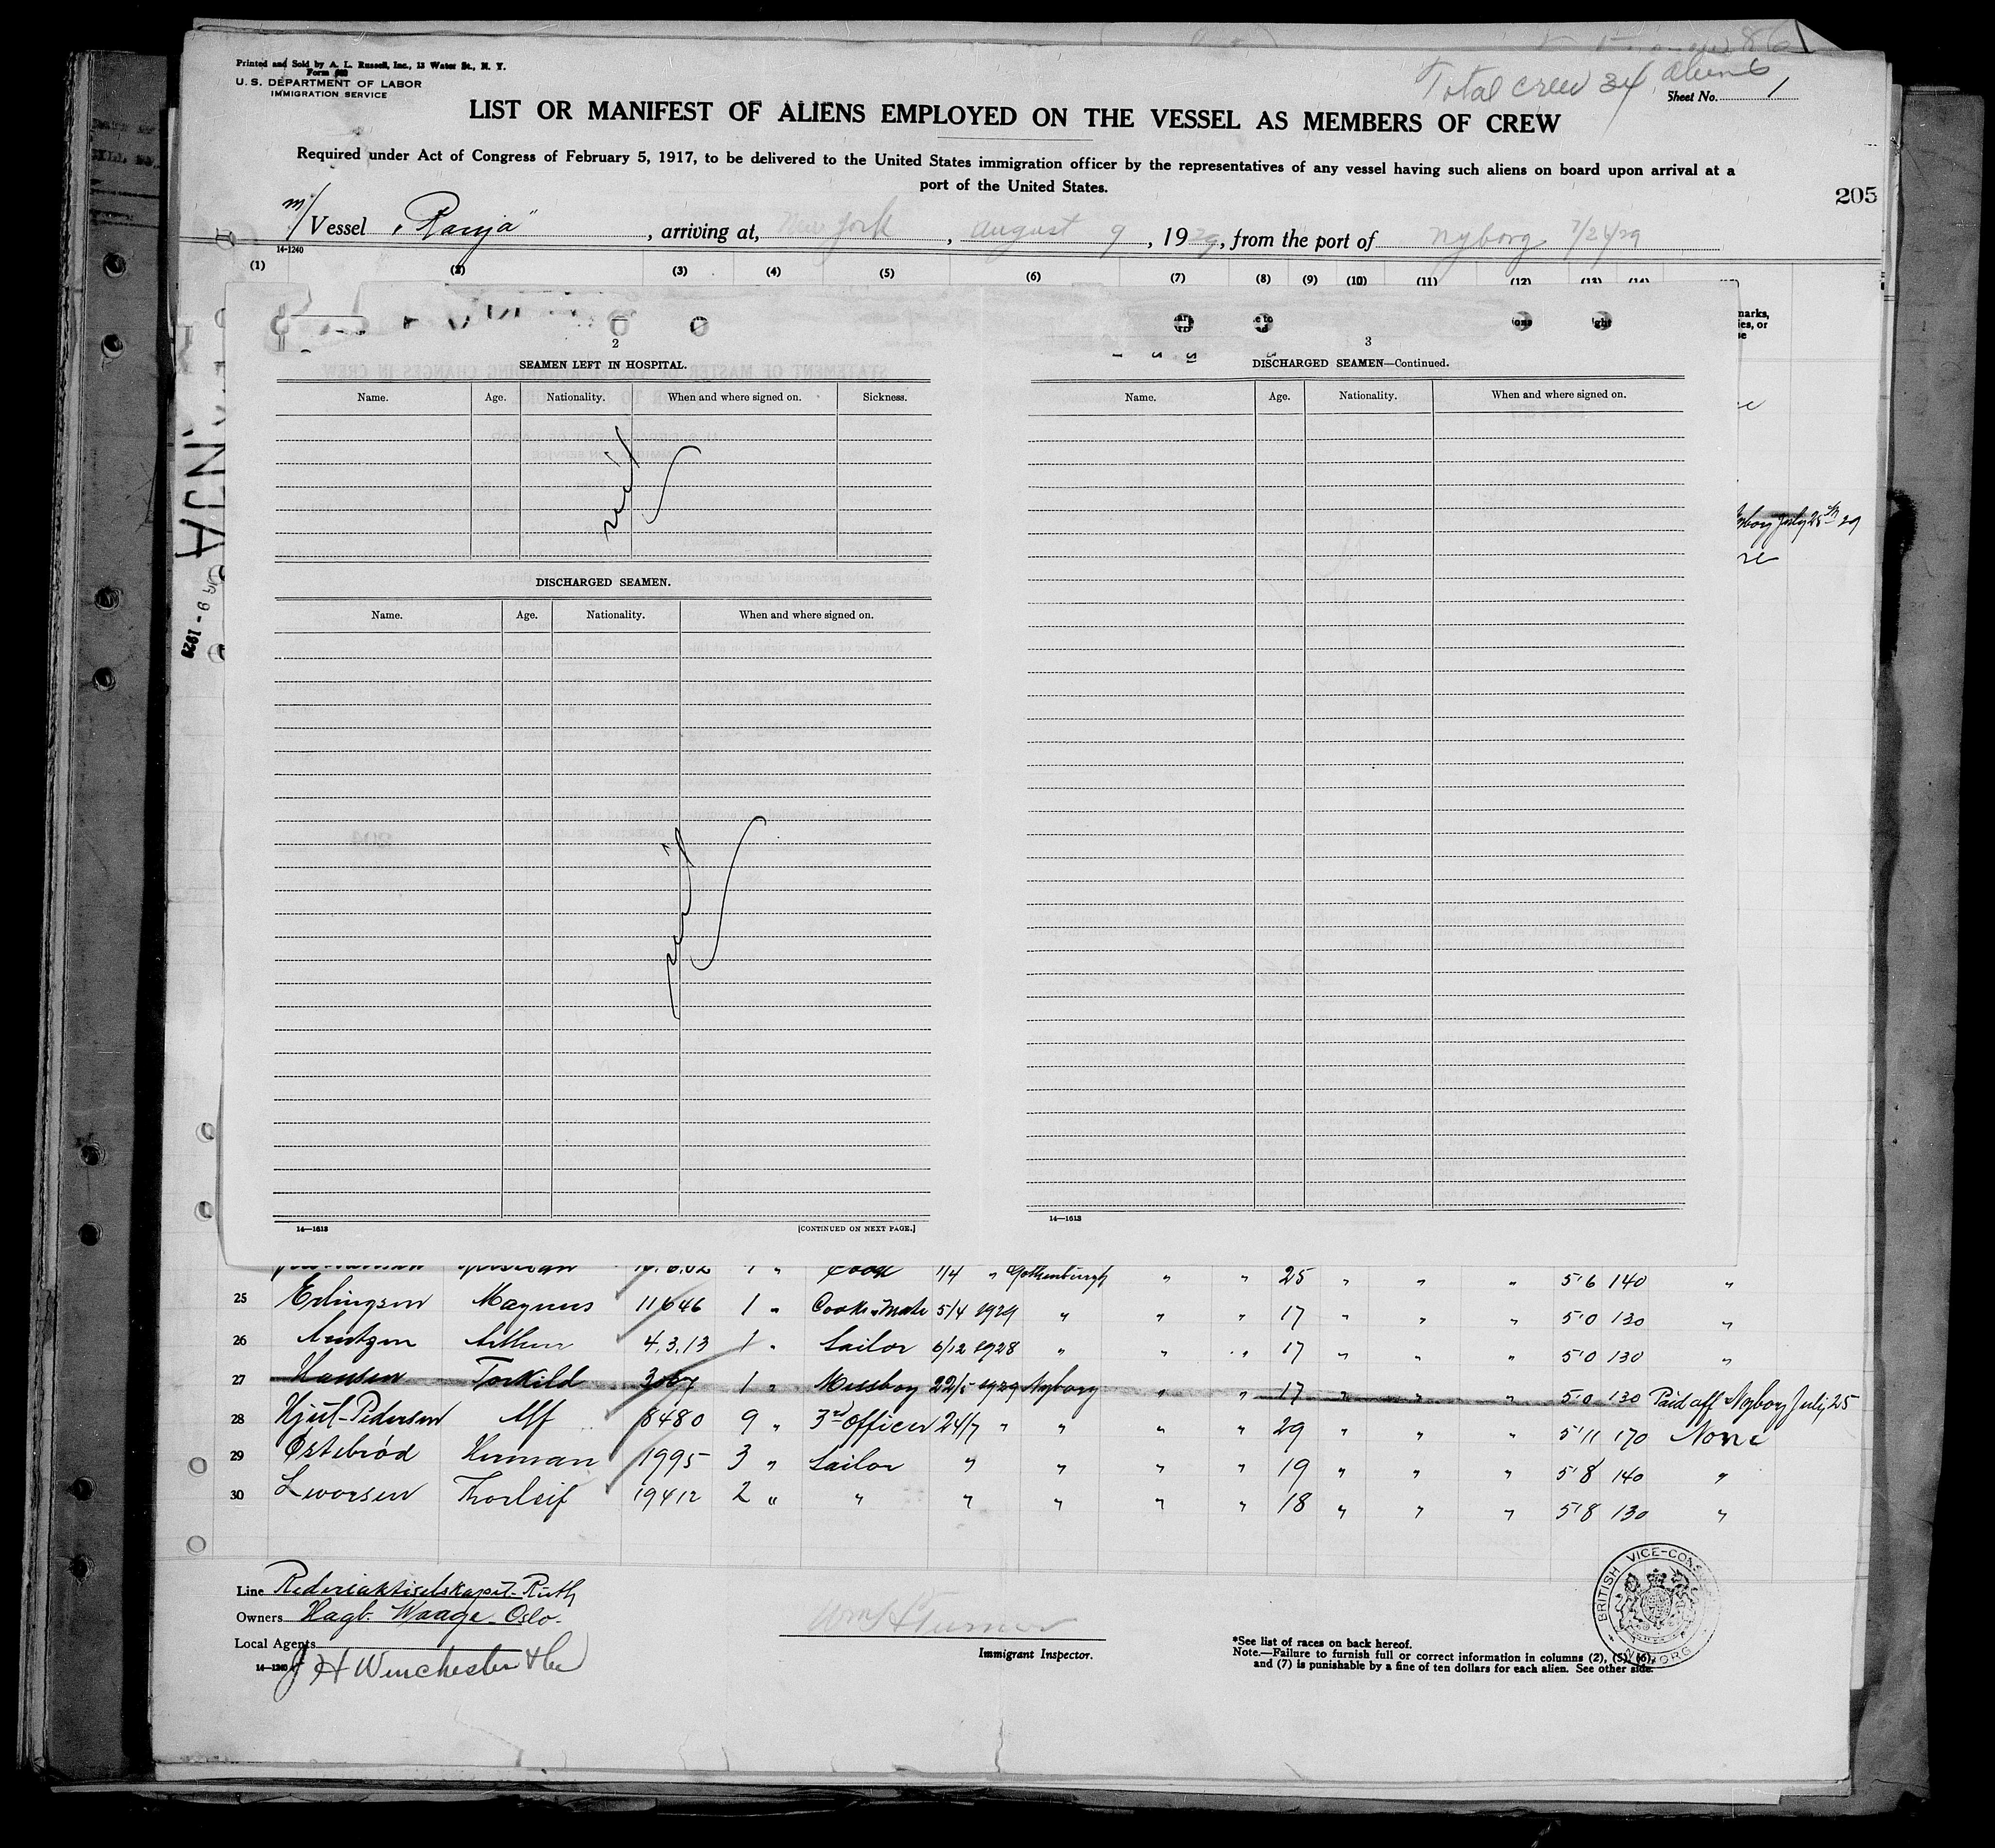 Printed and Sold by A. L. Russell, Inc., 13 Water St., N. Y.
Form 680
U. S. DEPARTMENT OF LABOR
IMMIGRATION SERVICE
Total crew 34 aliens
Sheet No. 1
LIST OR MANIFEST OF ALIENS EMPLOYED ON THE VESSEL AS MEMBERS OF CREW
Required under Act of Congress of February 5, 1917, to be delivered to the United States immigration officer by the representatives of any vessel having such aliens on board upon arrival at a
port of the United States.
205
m/ Vessel "Ranja", arriving at, New York, August 9, 1929, from the port of Nyborg 7/26/29
14-1240
(1) (2) (3) (4) (5) (6) (7) (8) (9) (10) (11) (12) (13) (14)
2
SEAMEN LEFT IN HOSPITAL.
Name. Age. Nationality. When and where signed on. Sickness.
DISCHARGED SEAMEN.
Name. Age. Nationality. When and where signed on.
14—1613 [CONTINUED ON NEXT PAGE.]
3
DISCHARGED SEAMEN—Continued.
Name. Age. Nationality. When and where signed on.
14—1613
July 25th 29
Cook 1/4 " Gothenburgh " " 25 " " " 5'6 140 "
25 Erlingsen Magnus 11646 1 " Cooks Mate 5/4 1929 " " " 17 " " " 5'0 130 "
26 Arntzen Arthur 4.3.13 1 " Sailor 6/12 1928 " " " 17 " " " 5'0 130 "
27 Hansen Torkild 3067 1 " Messboy 22/5 1929 Nyborg " " 17 " " " 5'0 130 Paid off Nyborg July 25
28 Hjul-Pedersen Alf 8480 9 " 3rd Officer 24/7 " " " " 29 " " " 5'11 170 None
29 Østebrød Herman 1995 3 " Sailor " " " " 19 " " " 5'8 140 "
30 Lworsen Thorleif 19412 2 " " " " " " 18 " " " 5'8 130 "
Line Rederiaktieselskapet Ruth
Owners Hagb. Waage Oslo.
Local Agents J H Winchester & Co
14—1240
Immigrant Inspector.
*See list of races on back hereof.
Note.—Failure to furnish full or correct information in columns (2), (5), (6),
and (7) is punishable by a fine of ten dollars for each alien. See other side.
BRITISH VICE-CONS
NYBORG